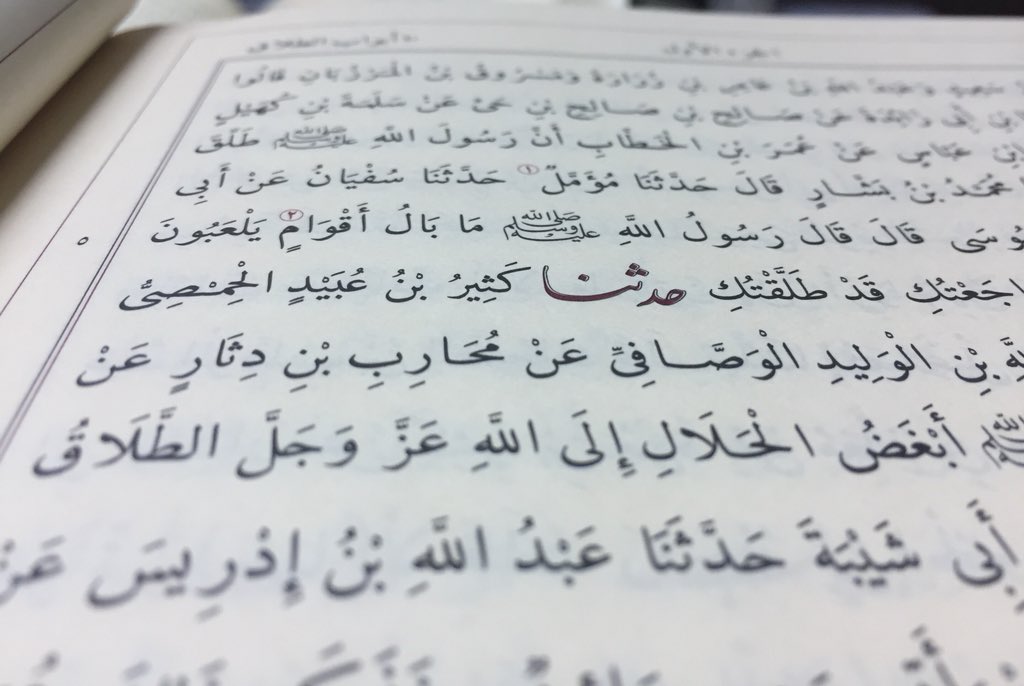 أبواب الطلاق
الجزء الأول
بْنُ عَامِرِ بْنِ زُرَارَةَ وَمَسْرُوقُ بْنُ الْمَرْزُبَانِ قَالُوا
ابْنِ أَبِي زَائِدَةَ عَنْ صَالِحِ بْنِ صَالِحِ بْنِ حَيٍّ عَنْ سَلَمَةَ بْنِ كُهَيْلٍ
ابْنِ عَبَّاسٍ عَنْ عُمَرَ بْنِ الْخَطَّابِ أَنَّ رَسُولَ اللَّهِ ﷺ طَلَّقَ
مُحَمَّدُ بْنُ بَشَّارٍ قَالَ حَدَّثَنَا مُؤَمَّلٌ ١ حَدَّثَنَا سُفْيَانُ عَنْ أَبِي
مُوسَى قَالَ قَالَ رَسُولُ اللَّهِ ﷺ مَا بَالُ أَقْوَامٍ ٢ يَلْعَبُونَ
قَدْ طَلَّقْتُكِ حدثنا كَثِيرُ بْنُ عُبَيْدٍ الْحِمْصِيُّ
بْنِ الْوَلِيدِ الْوَصَّافِيِّ عَنْ مُحَارِبِ بْنِ دِثَارٍ عَنْ
ﷺ أَبْغَضُ الْحَلَالِ إِلَى اللَّهِ عَزَّ وَجَلَّ الطَّلَاقُ
أَبِي شَيْبَةَ حَدَّثَنَا عَبْدُ اللَّهِ بْنُ إِدْرِيسَ عَنْ